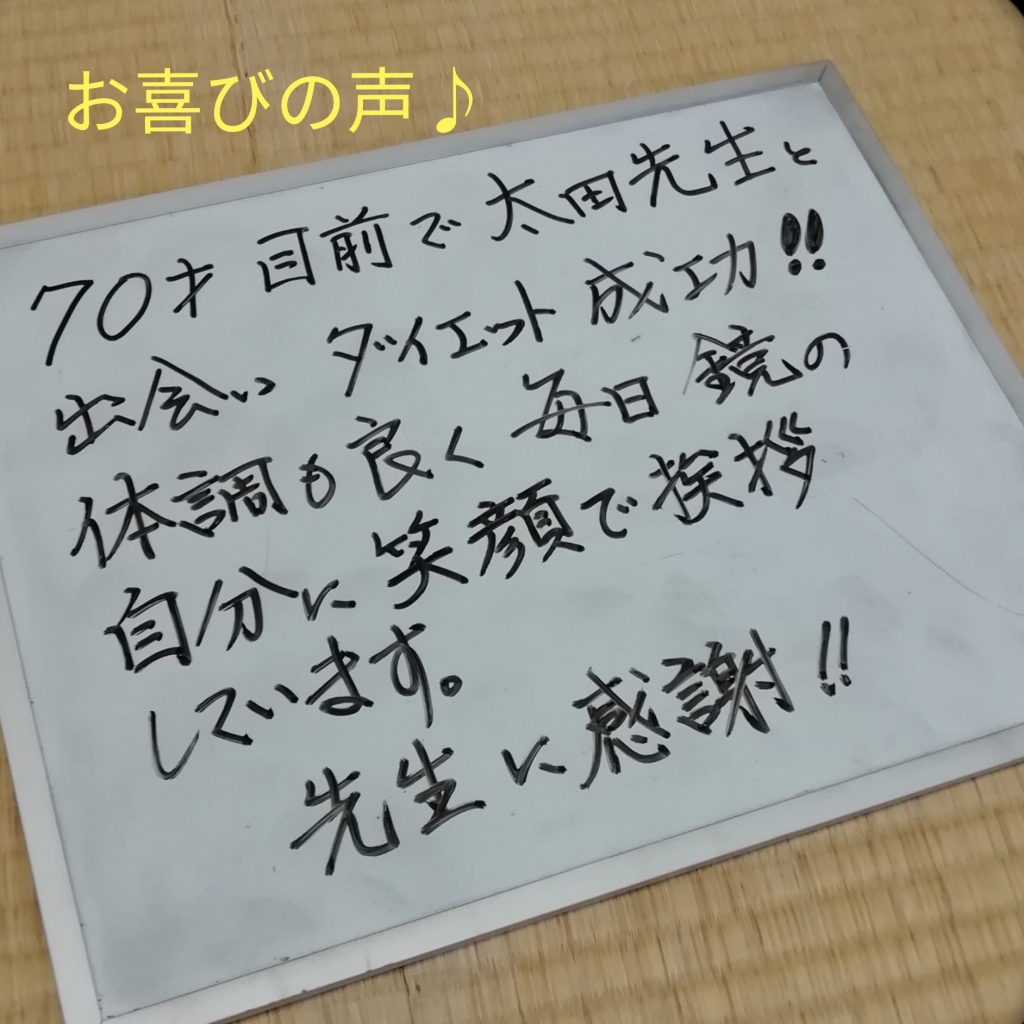 お喜びの声♪
70才目前で太田先生と
出会いダイエット成功!!
体調も良く毎日鏡の
自分に笑顔で挨拶
しています。
先生に感謝!!